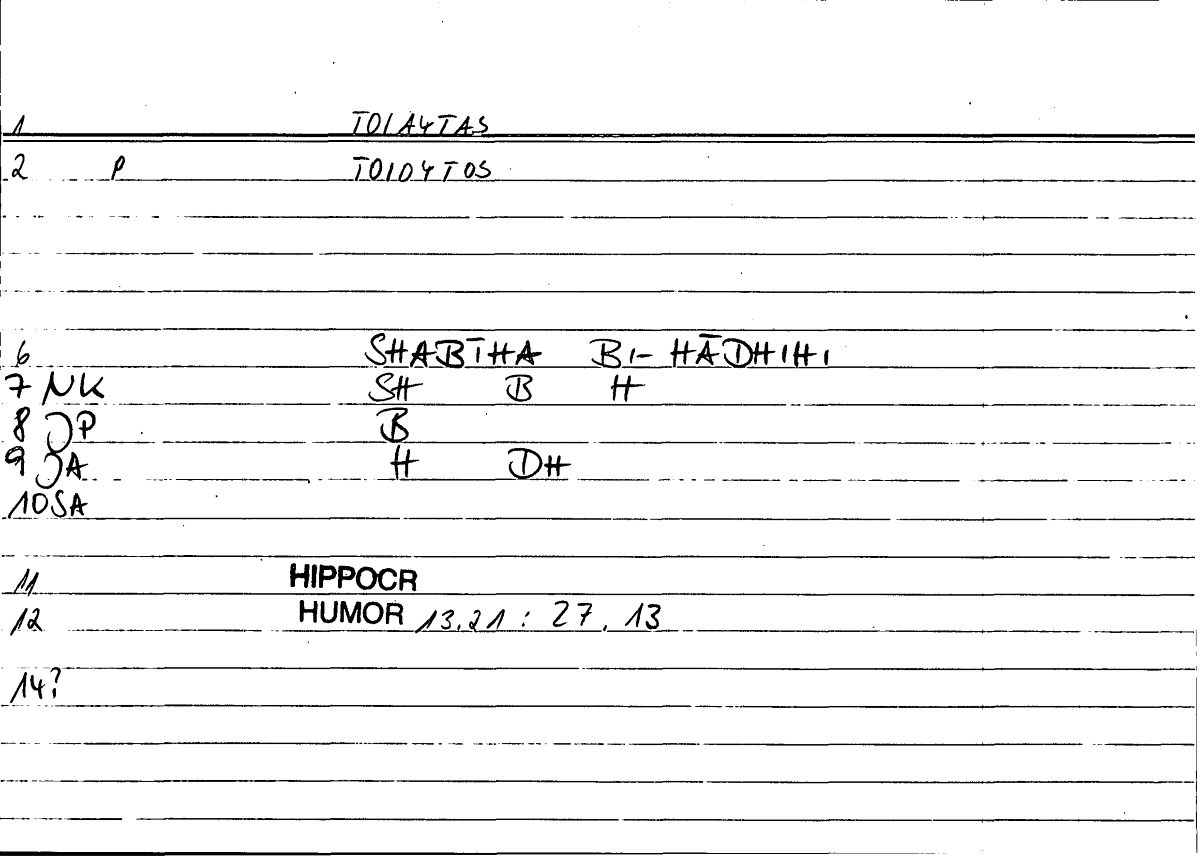 1 TOIA4TAS
2 P TOIO4TOS
6 SHABĪHA BI- HĀDHIHI
7 NK SH B H
8 JP B
9 JA H DH
10 SA
11 HIPPOCR
12 HUMOR 13.21 : 27.13
14?